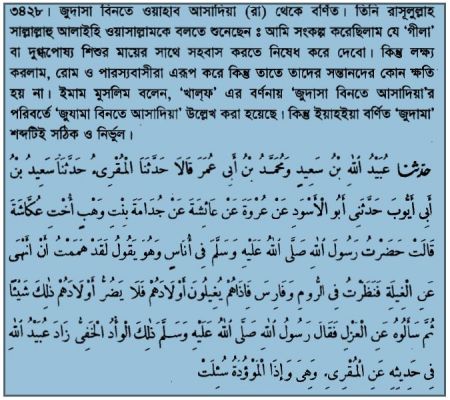 ৩৪২৮। জুদাসা বিনতে ওয়াহাব আসাদিয়া (রা) থেকে বর্ণিত। তিনি রাসূলুল্লাহ
সাল্লাল্লাহু আলাইহি ওয়াসাল্লামকে বলতে শুনেছেন ঃ আমি সংকল্প করেছিলাম যে 'গীলা'
বা দুগ্ধপোষ্য শিশুর মায়ের সাথে সহবাস করতে নিষেধ করে দেবো। কিন্তু লক্ষ্য
করলাম, রোম ও পারস্যবাসীরা এরূপ করে কিন্তু তাতে তাদের সন্তানদের কোন ক্ষতি
হয় না। ইমাম মুসলিম বলেন, 'খাল্‌ফ' এর বর্ণনায় 'জুদাসা বিনতে আসাদিয়া'র
পরিবর্তে 'জুযামা বিনতে আসাদিয়া' উল্লেখ করা হয়েছে। কিন্তু ইয়াহইয়া বর্ণিত 'জুদামা'
শব্দটিই সঠিক ও নির্ভুল।
حدثنا عُبَيْدُ اللهِ بْنُ سَعِيدٍ وَمُحَمَّدُ بْنُ أَبِي عُمَرَ قَالَا حَدَّثَنَا الْمُقْرِئُ حَدَّثَنَا سَعِيدُ بْنُ
أَبِي أَيُّوبَ حَدَّثَنِي أَبُو الْأَسْوَدِ عَنْ عُرْوَةَ عَنْ عَائِشَةَ عَنْ جُدَامَةَ بِنْتِ وَهْبٍ أُخْتِ عُكَّاشَةَ
قَالَتْ حَضَرْتُ رَسُولَ اللهِ صَلَّى اللهُ عَلَيْهِ وَسَلَّمَ فِي أُنَاسٍ وَهُوَ يَقُولُ لَقَدْ هَمَمْتُ أَنْ أَنْهَى
عَنِ الْغِيلَةِ فَنَظَرْتُ فِي الرُّومِ وَفَارِسَ فَإِذَا هُمْ يُغِيلُونَ أَوْلَادَهُمْ فَلَا يَضُرُّ أَوْلَادَهُمْ ذَلِكَ شَيْئًا
ثُمَّ سَأَلُوهُ عَنِ الْعَزْلِ فَقَالَ رَسُولُ اللهِ صَلَّى اللهُ عَلَيْهِ وَسَلَّمَ ذَلِكَ الْوَأْدُ الْخَفِيُّ زَادَ عُبَيْدُ اللهِ
فِي حَدِيثِهِ عَنِ الْمُقْرِئِ وَهِيَ وَإِذَا الْمَوْؤُدَةُ سُئِلَتْ